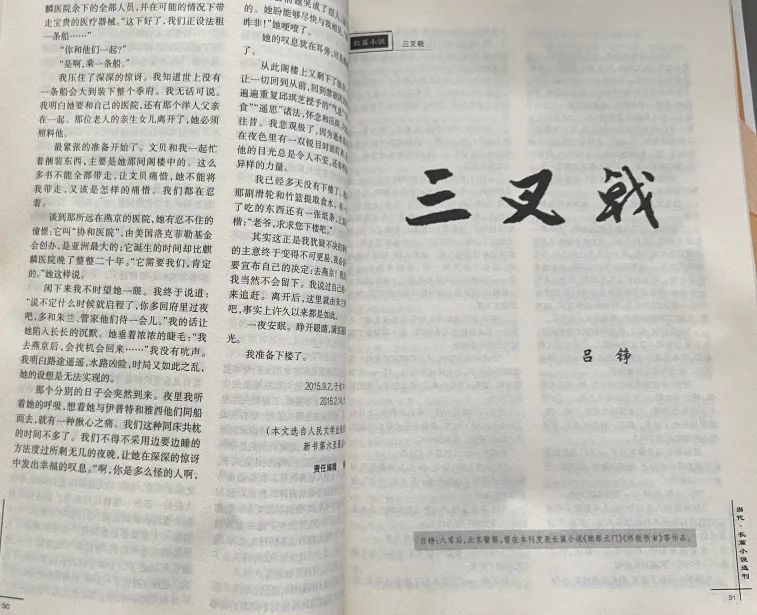 麟医院余下的全部人员，并在可能的情况下带
走宝贵的医疗器械。“这下好了，我们正设法租
一条船……”
“你和他们一起？”
“是啊，乘一条船。”
我压住了深深的惊讶。我知道世上没有
一条船会大到装下整个季府。我无话可说。
我明白她要和自己的医院，还有那个洋人父亲
在一起。那位老人的亲生女儿离开了，她必须
照料他。
最紧张的准备开始了。文贝和我一起忙
着捆装东西，主要是她那间阁楼中的。这么
多书不能全部带走，让文贝痛惜，她不能将
我带走，又该是怎样的痛惜。我们都在忍
着。
谈到那所远在燕京的医院，她有忍不住的
憧憬：它叫“协和医院”，由美国洛克菲勒基金
会创办，是亚洲最大的；它诞生的时间却比麒
麟医院晚了整整二十年。“它需要我们，肯定
的。”她这样说。
闲下来我不时望她一眼。我终于说道：
“说不定什么时候就启程了，你多回府里过夜
吧，多和朱兰、管家他们待一会儿。”我的话让
她陷入长长的沉默。她垂着浓浓的睫毛：“我
去燕京后，会找机会回来……”我没有吭声。
我明白路途遥遥，水路凶险，时局又如此之乱，
她的设想是无法实现的。
那个分别的日子会突然到来。夜里我听
着她的呼吸，想着她与伊普特和雅西他们同船
而去，就有一种揪心之痛。我们这种同床共枕
的时间不多了。我们不得不采用边要边睡的
方法度过所剩无几的夜晚，让她在深深的惊讶
中发出幸福的叹息。“啊，你是多么怪的人啊，
的。她盼能够尽快与我相见
昨非！”她哽咽了。
她的叹息犹在耳旁，
了。
从此阁楼上又剩下了
让一切回到从前，回到
遍遍重复邱琪芝授予的“气息”
食”“遥思”诸法，怀念和
往昔。我悲观极了，因为
在夜色里有一双锐目时而
他的目光总是令人不安，还有
异样的力量。
我已经多天没有下楼了。
那副滑轮和竹篮提取食水。
了吃的东西还有一张纸条，上
楷：“老爷，求求您下楼吧。”
其实这正是我犹疑不决的
的主意终于变得不可更易，我
要宣布自己的决定：去燕京！
我当然不会留下。我说过自己
来追赶。离开后，这里就由朱兰
吧，事实上许久以来都是如此。
一夜安眠。睁开眼睛，满室
光。
我准备下楼了。
2015.9.2,
2016.2.14,
（本文选自人民文学出版
新书第六至
责任编辑
90
长篇小说
三叉戟
三叉戟
吕铮
吕铮：八零后，北京警察，曾在本刊发表长篇小说《赎罪无门》《终极抉审》等作品。
当代·长篇小说选刊
91